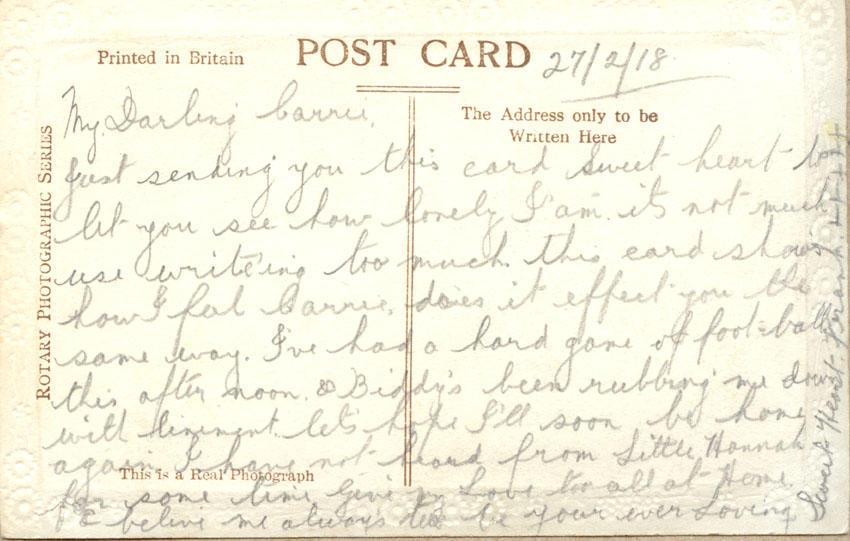 Printed in Britain
POST CARD
27/2/18
The Address only to be
Written Here
ROTARY PHOTOGRAPHIC SERIES
This is a Real Photograph
My Darling Carrie,
Just sending you this card sweet heart to
let you see how lonely I am. it's not much
use writeing too much this card shows
how I feel Carrie, does it effect you the
same way. I've had a hard game of foot-ball
this after noon. & Biddy's been rubbing me down
with liniment. let's hope I'll soon be home
again I have not heard from Little Hannah
for some time Give my Love to all at Home.
& belive me always to be your ever Loving
Sweet Heart. Frank